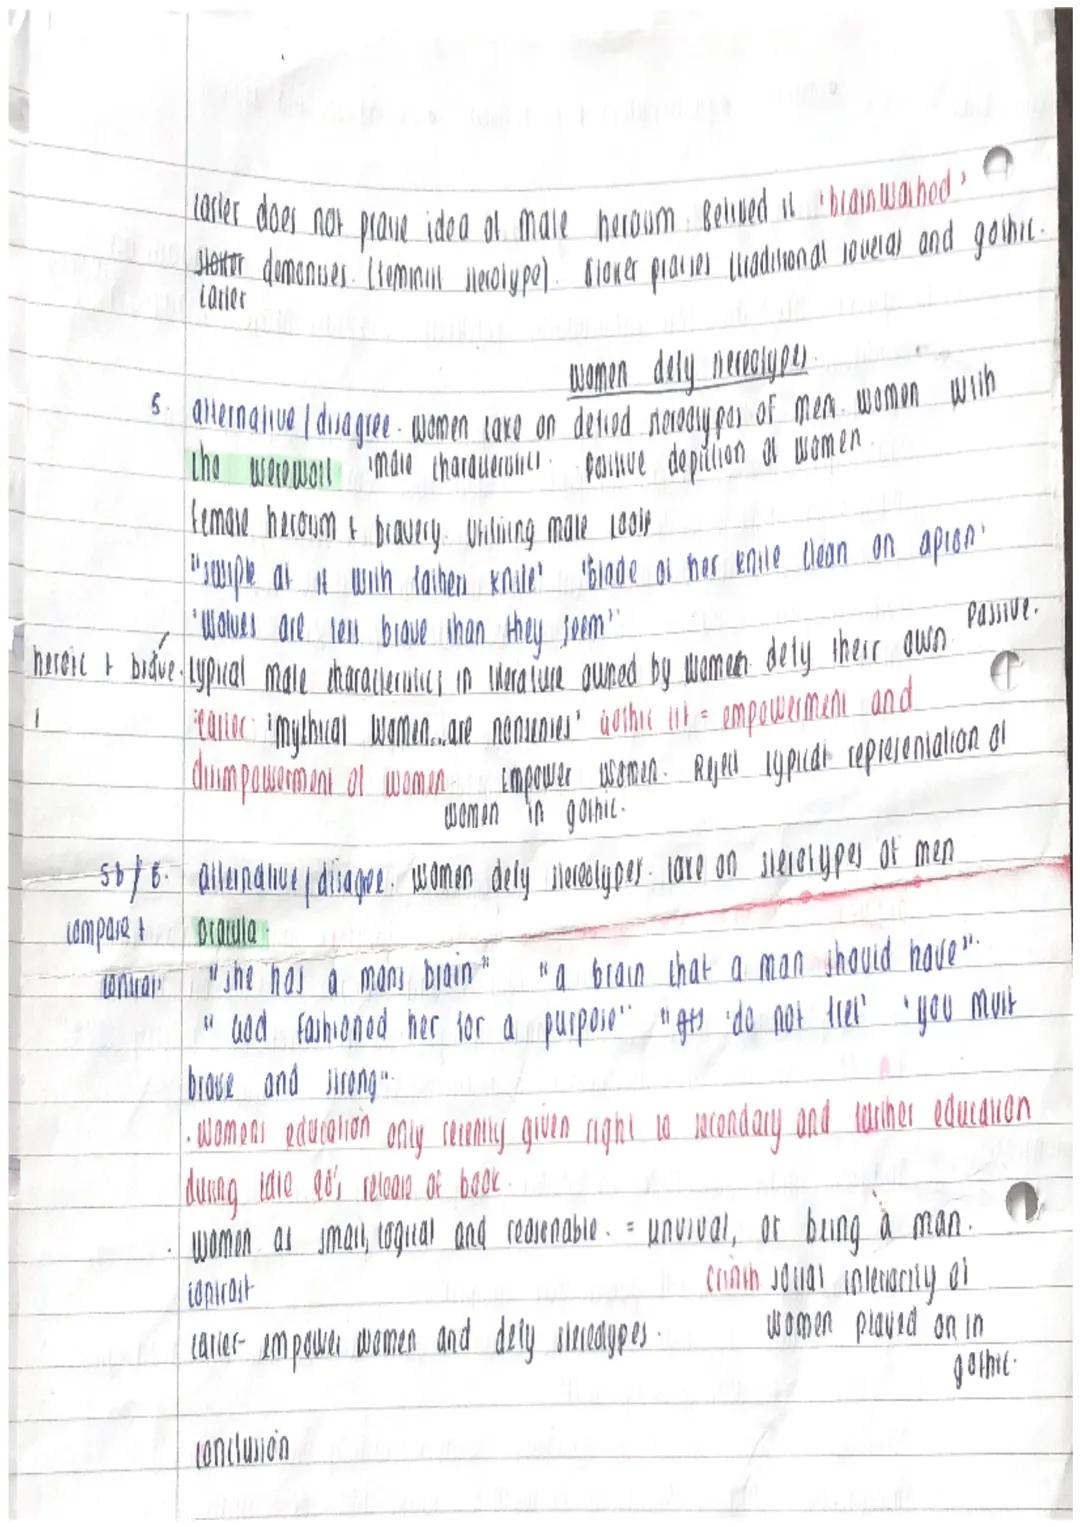 carter does not praise idea of male heroism. Belived it 'brainwashed'
stoker demonises. (feminist sterotype). Stoker praises (traditional societal) and gothic.
carter
women defy stereotypes.
5. alternative / disagree. women take on defied stereotypes of men. women with
the werewolf male characteristics. positive depiction of women.
female heroism & bravery. Utilising male tools
"swipe at it with fathers knife" 'blade of her knife clean on apron'
'wolves are less brave than they seem'
passive.
heroic + brave. typical male characteristics in literature owned by women. defy their own
carter: 'mythical women...are nonsenses' Gothic lit = empowerment and
disimpowerment of women empower women. Reject typical representation of
women in gothic.
5b / 6. alternative / disagree. women defy stereotypes. take on steretypes of men
compare + Dracula.
contrast "she has a mans brain" "a brain that a man should have".
"God fashioned her for a purpose" 'do not fret' 'you must
brave and strong".
. womens education only recently given right to secondary and further education
during late 90's release of book.
. women as smart, logical and reasenable. = unusual, of being a man.
contrast social inferiority of
carter- empower women and defy stereotypes. women played on in
gothic.
conclusion